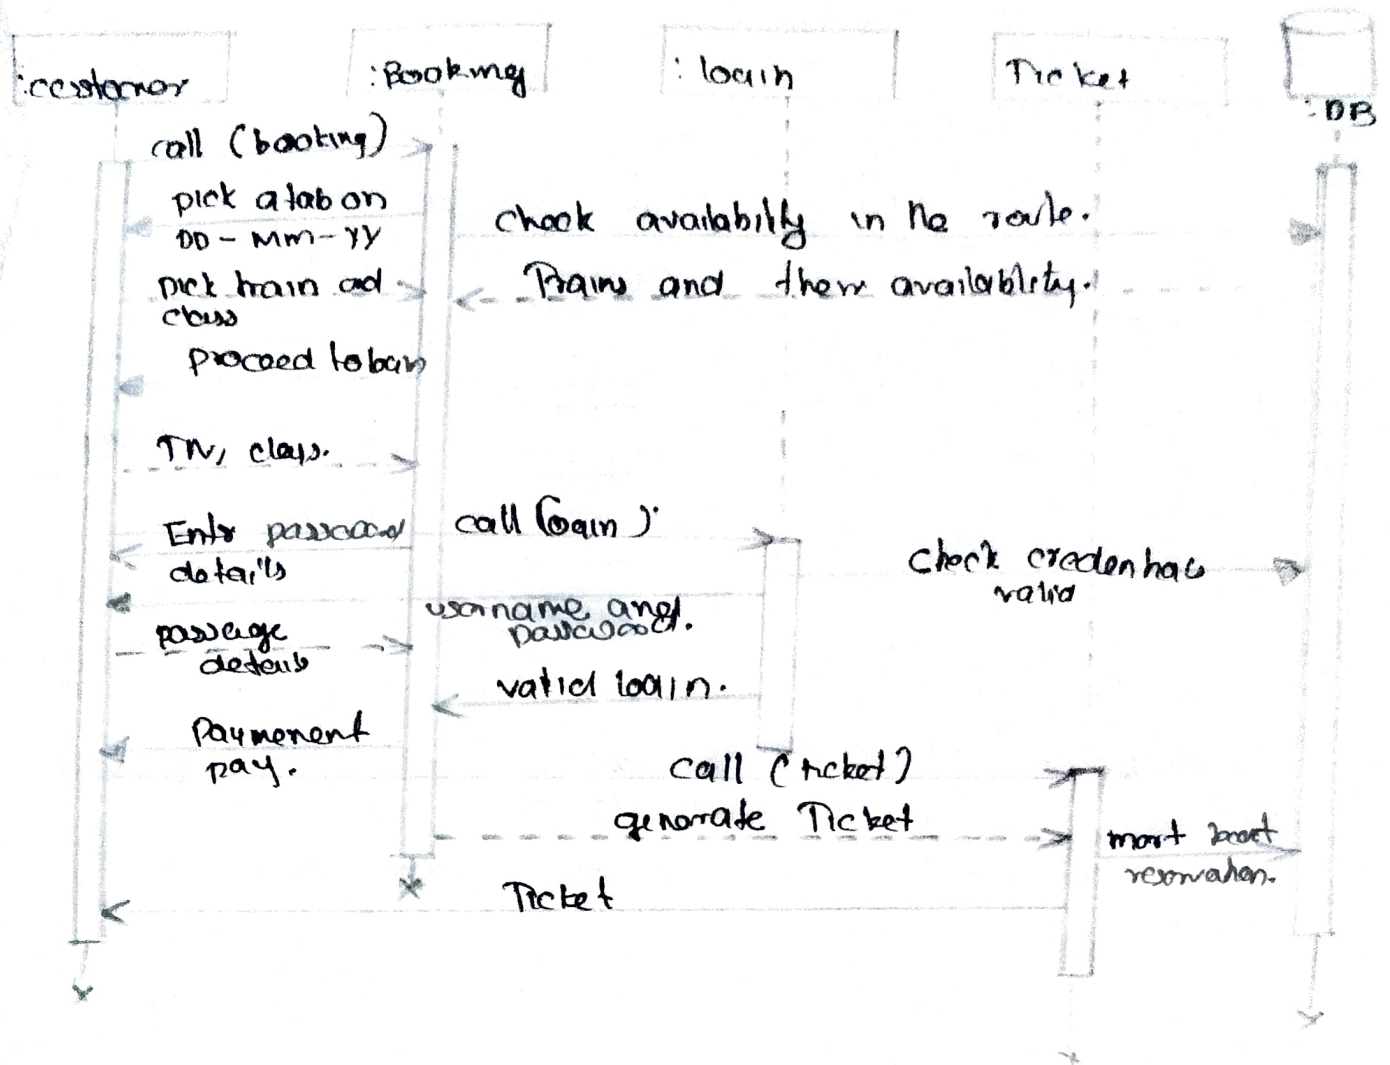 :customer
:Booking
: login
Ticket
: DB
call (booking)
pick a tab on
DD - MM - YY
check availability in the route.
pick train and
class
Trains and their availability.
proceed to
TN, class.
Enter
details
call (login)
check credentials
valid
username and
password.
passenge
details
valid login.
Paymenent
pay.
call (ticket)
generate Ticket
reservation.
Ticket